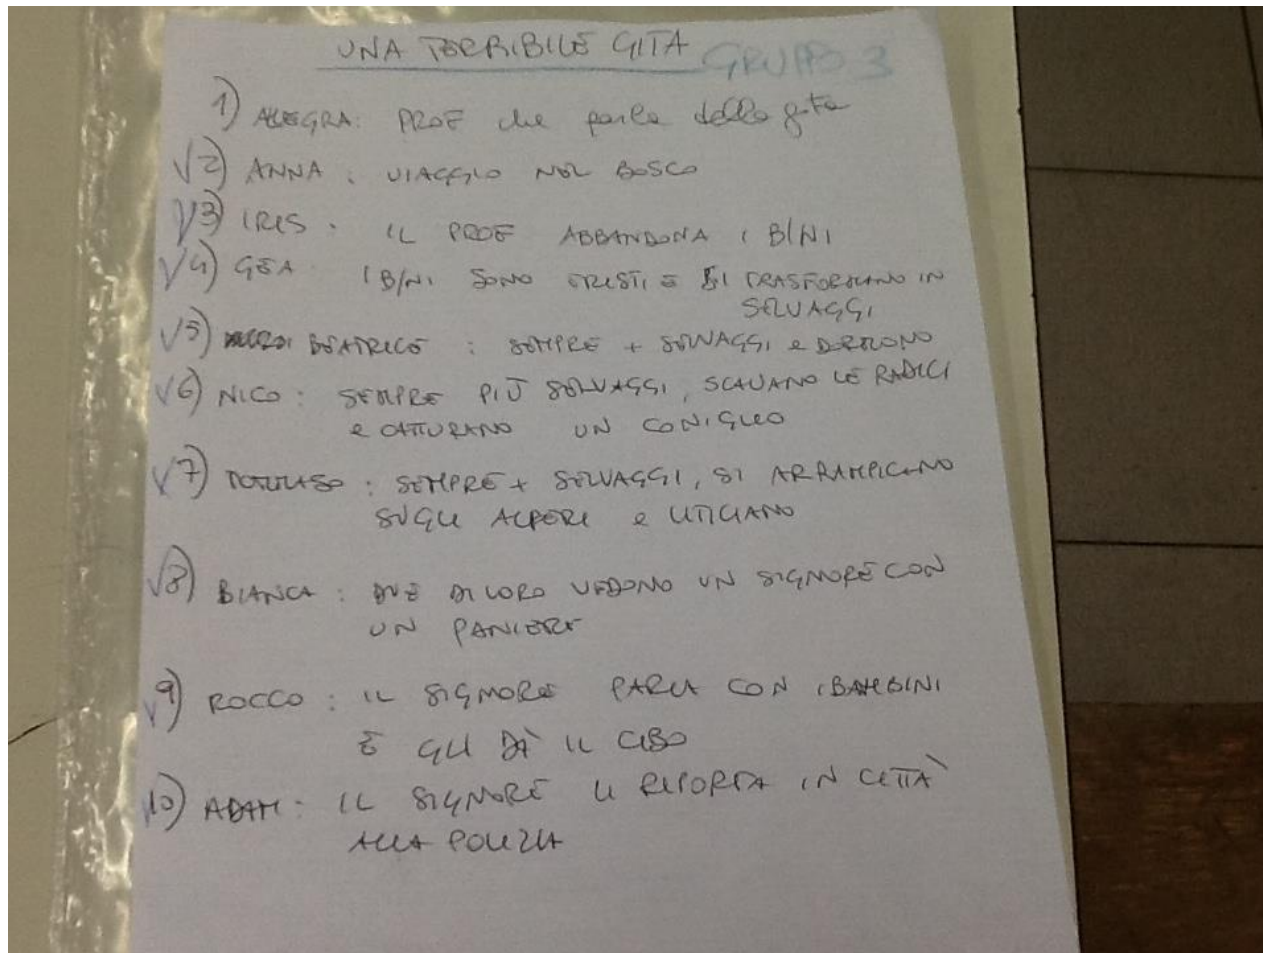 UNA TERRIBILE GITA GRUPPO 3
1) ALLEGRA: PROF che parla della gita
√2) ANNA: VIAGGIO NEL BOSCO
√3) IRIS: IL PROF ABBANDONA I B/NI
√4) GEA: I B/NI SONO TRISTI E SI TRASFORMANO IN
SELVAGGI
√5) BEATRICE: SEMPRE + SELVAGGI e DORMONO
√6) NICO: SEMPRE PIÙ SELVAGGI, SCAVANO LE RADICI
e CATTURANO UN CONIGLIO
√7) TOMMASO: SEMPRE + SELVAGGI, SI ARRAMPICANO
SUGLI ALBERI e LITIGANO
√8) BIANCA: DUE DI LORO VEDONO UN SIGNORE CON
UN PANIERE
√9) ROCCO: IL SIGNORE PARLA CON I BAMBINI
E GLI DÀ IL CIBO
√10) ADAM: IL SIGNORE LI RIPORTA IN CITTÀ
ALLA POLIZIA